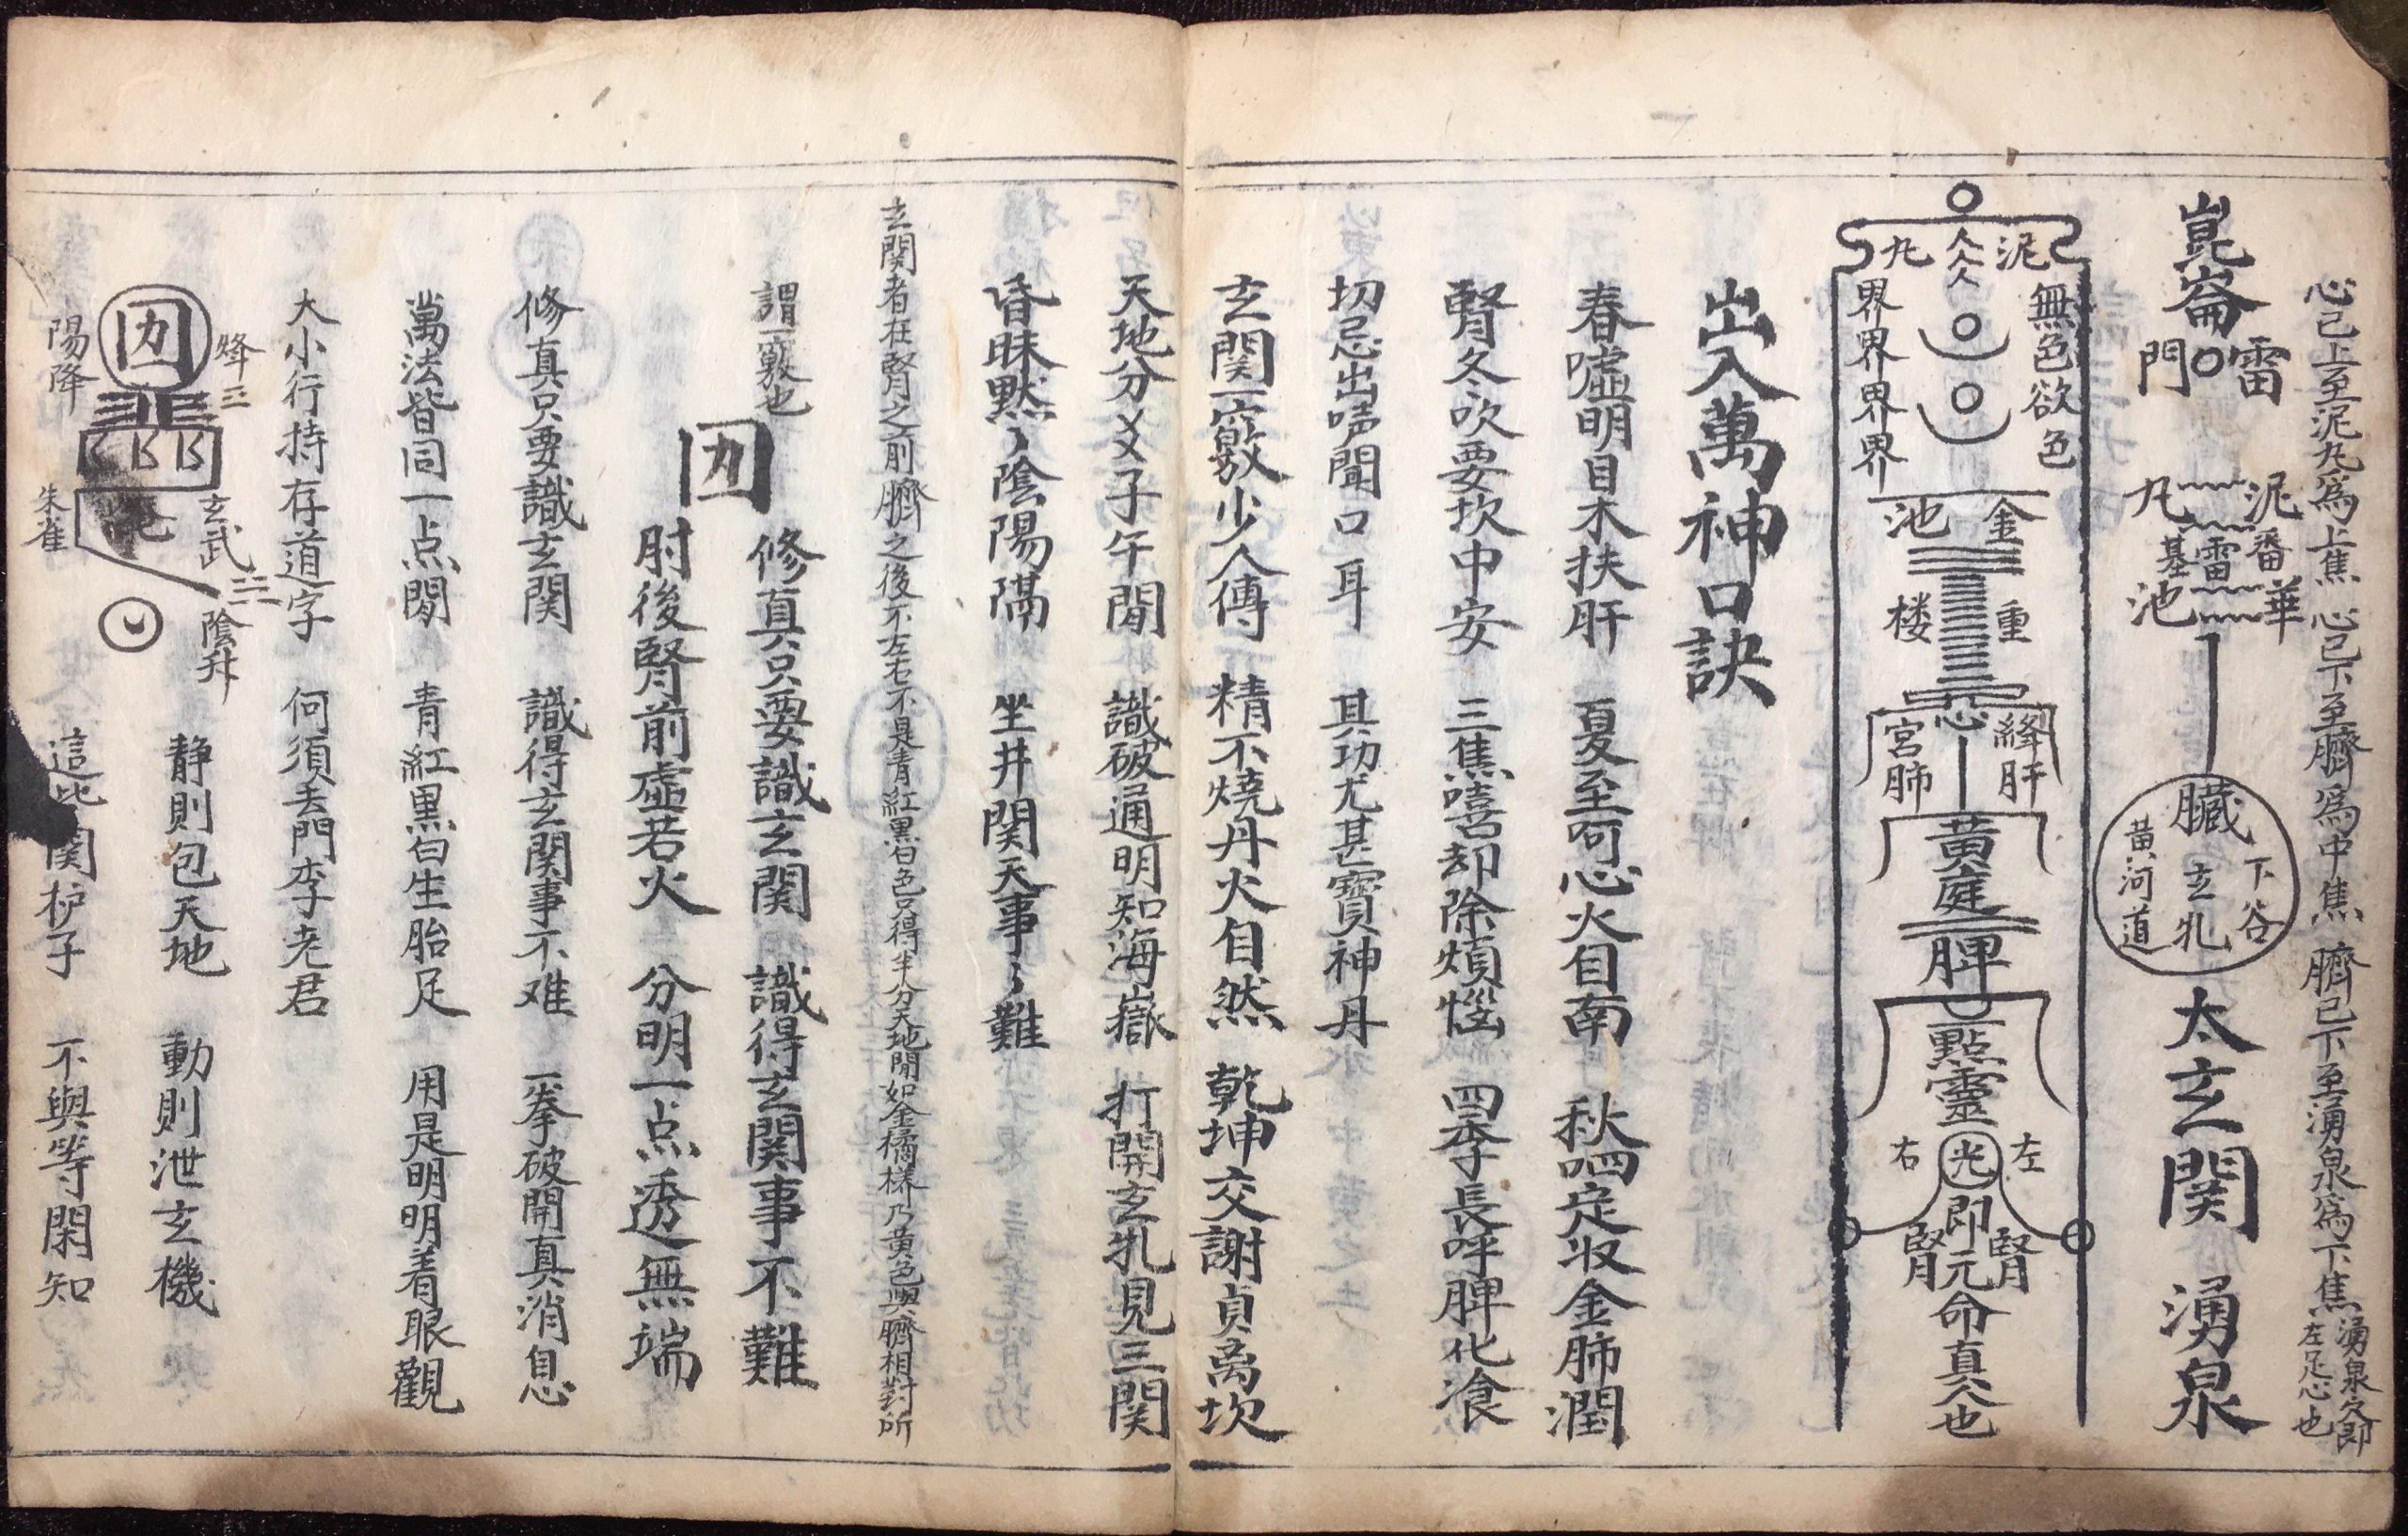 心已上至泥丸爲上焦 心已下至臍爲中焦 臍已下至湧泉爲下焦 湧泉即左足心也
崑崙
雷門
泥丸
番基
雷
華池
臟
下谷
玄牝
黃河道
太玄関 湧泉
泥丸
無色欲色
界界界界
金池
重楼
心
絳宮
肝肺
黃庭
脾
一點靈
光
左右
即元命真人也
腎腎
出入萬神口訣
春噓明目木扶肝 夏至呵心火自南 秋呬定收金肺潤
腎冬吹要坎中安 三焦嘻却除煩惱 四季長呼脾化飡
切忌出唕聞口耳 其功尤甚寶神丹
玄関一竅少人傳 精不燒丹火自然 乾坤交謝貞离坎
天地分爻子午間 識破通明知海嶽 打開玄牝見三関
昏昧黙〻陰陽隔 坐井関天事〻難
玄関者在腎之前臍之後不左右不是青紅黒白色只得半分天地間如金橘樣乃黄色與臍相對所
謂一竅也
囡 修真只要識玄関 識得玄関事不難
肘後腎前虛若火 分明一点透無端
修真只要識玄関 識得玄関事不难 一拳破開真消息
萬法皆同一点閒 青紅黒白生胎足 用是明明着眼觀
大小行持存道字 何須去門李老君
陽降
朱雀
玄武
陰升
静則包天地 動則泄玄機
這此関杦子 不與等閑知